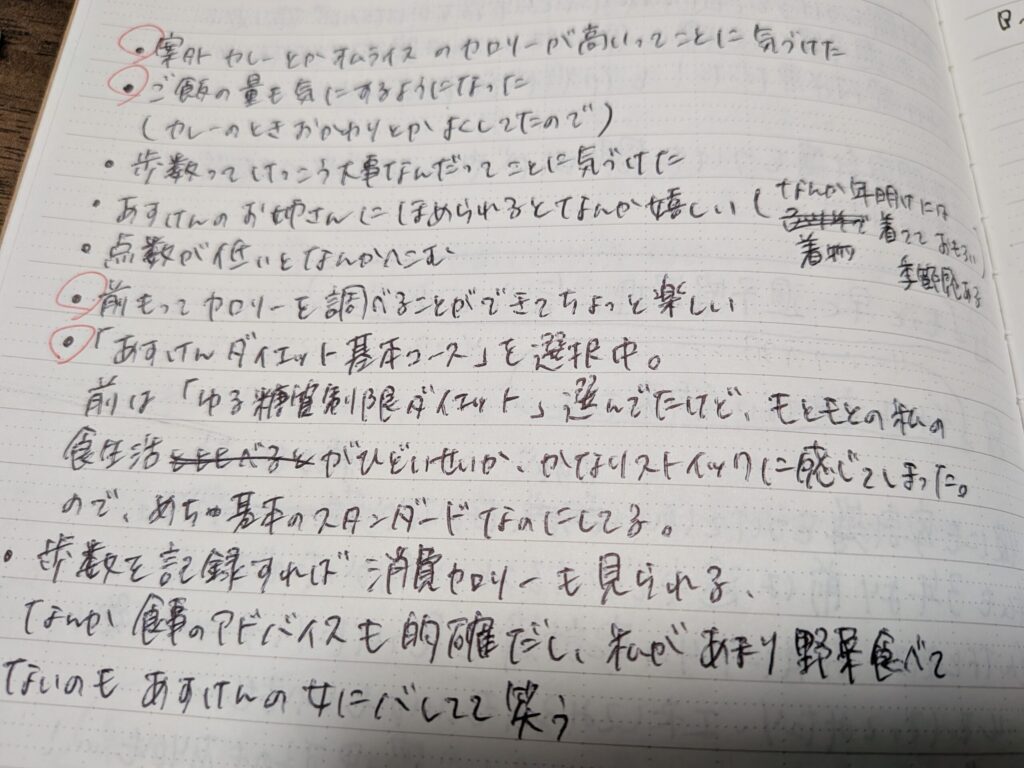 ・案外カレーとかオムライスのカロリーが高いってことに気づけた
・ご飯の量も気にするようになった
(カレーのときおかわりとかよくしてたので)
・歩数ってけっこう大事なんだってことに気づけた
・あすけんのお姉さんにほめられるとなんか嬉しい(なんか年明けには
着物 着てておもろい)
季節感ある
・点数が低いとなんかへこむ
・前もってカロリーを調べることができてちょっと楽しい
・「あすけんダイエット基本コース」を選択中。
前は「ゆる糖質制限ダイエット」選んでたけど、もともとの私の
食生活がひどいせいか、かなりストイックに感じてしまった。
ので、めちゃ基本のスタンダードなのにしてる。
・歩数を記録すれば消費カロリーも見られる、
なんか食事のアドバイスも的確だし、私があまり野菜食べて
ないのもあすけんの女にバレてて笑う